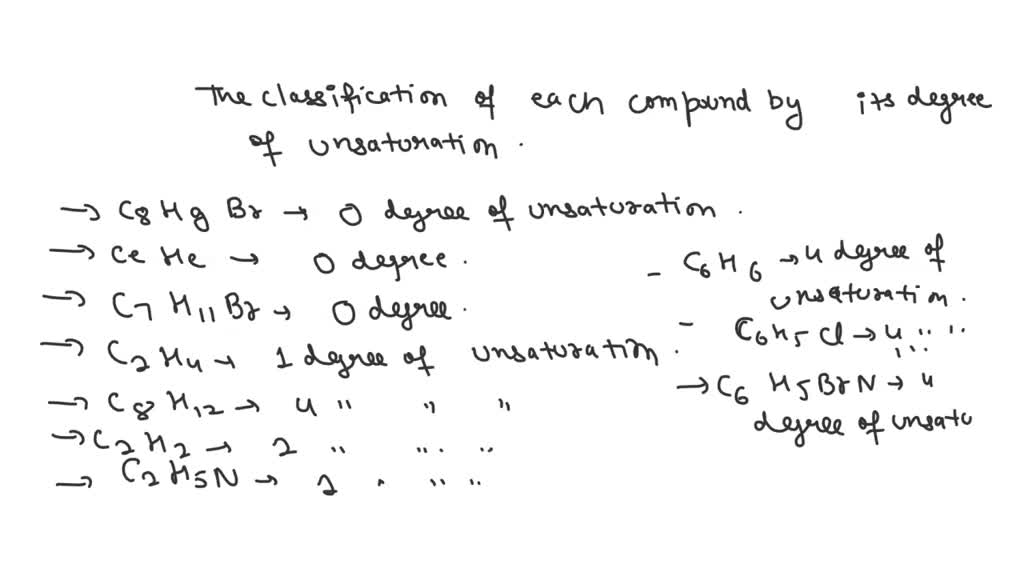 The classification of each compound by its degree
of unsaturation.
→ C8 H9 Br → 0 degree of unsaturation.
→ Ce He → 0 degree.
→ C7 H11 Br → 0 degree.
→ C2 H4 → 1 degree of unsaturation.
→ C8 H12 → 4 " " "
→ C2 H2 → 2 " " "
→ C2 H5 N → 1 " " "
- C6 H6 → 4 degree of
unsaturation.
- C6 H5 Cl → 4 " "
→ C6 H5 Br N → 4
degree of unsatu